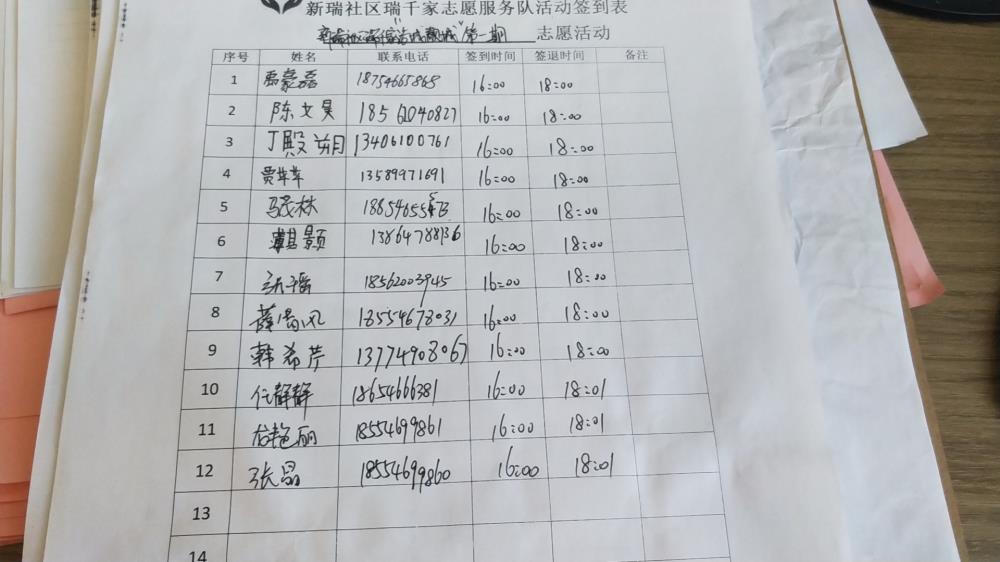 新瑞社区瑞千家志愿服务队活动签到表
第一期 志愿活动
序号 姓名 联系电话 签到时间 签退时间 备注
1 禹蒙磊 18754665865 16:00 18:00
2 陈文昊 18561040827 16:00 18:00
3 丁殿 13406100761 16:00 18:00
4 贾苹苹 13589971691 16:00 18:00
5 马茂林 16:00 18:00
6 景颢 13864788136 16:00 18:00
7 张瑶 18562003945 16:00 18:00
8 薛尚风 18554678031 16:00 18:00
9 韩希芹 13774908067 16:00 18:00
10 任静静 18654666381 16:00 18:01
11 尤艳丽 18554699861 16:00 18:01
12 张晶 18554699860 16:00 18:01
13
14